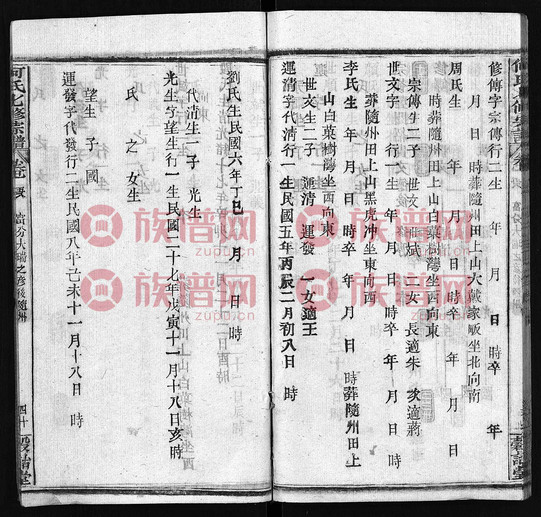 修傳字宗傳行二生 年 月 日 時卒 年
月 日 時葬隨州田上山大戴家畈坐北向南
周氏生 年 月 日 時卒 年 月 日
時葬隨州田上山白菓樹灣坐西向東
宗傳生二子 世文 世斌 二女 長適朱 次適蔣
世文字 行 生 年 月 日 時卒 年 月 日 時
葬隨州田上山黑虎冲坐東向西
李氏生 年 月 日 時卒 年 月 日 時葬隨州田上
山白菓樹灣坐西向東
世文生二子 運清 運發 一女適王
運清字代清行一生民國五年丙辰二月初八日 時
劉氏生民國六年丁巳 月 日 時
代清生一子 光生
光生字望生行一生民國二十七年戊寅十一月十八日亥時
氏 之女生
望生 子 國
運發字代發行二生民國八年己未十一月十八日 時
何氏七修宗譜
富分大瑞之彥後隨州
四十
穀詒堂
族谱网
zupu.cn